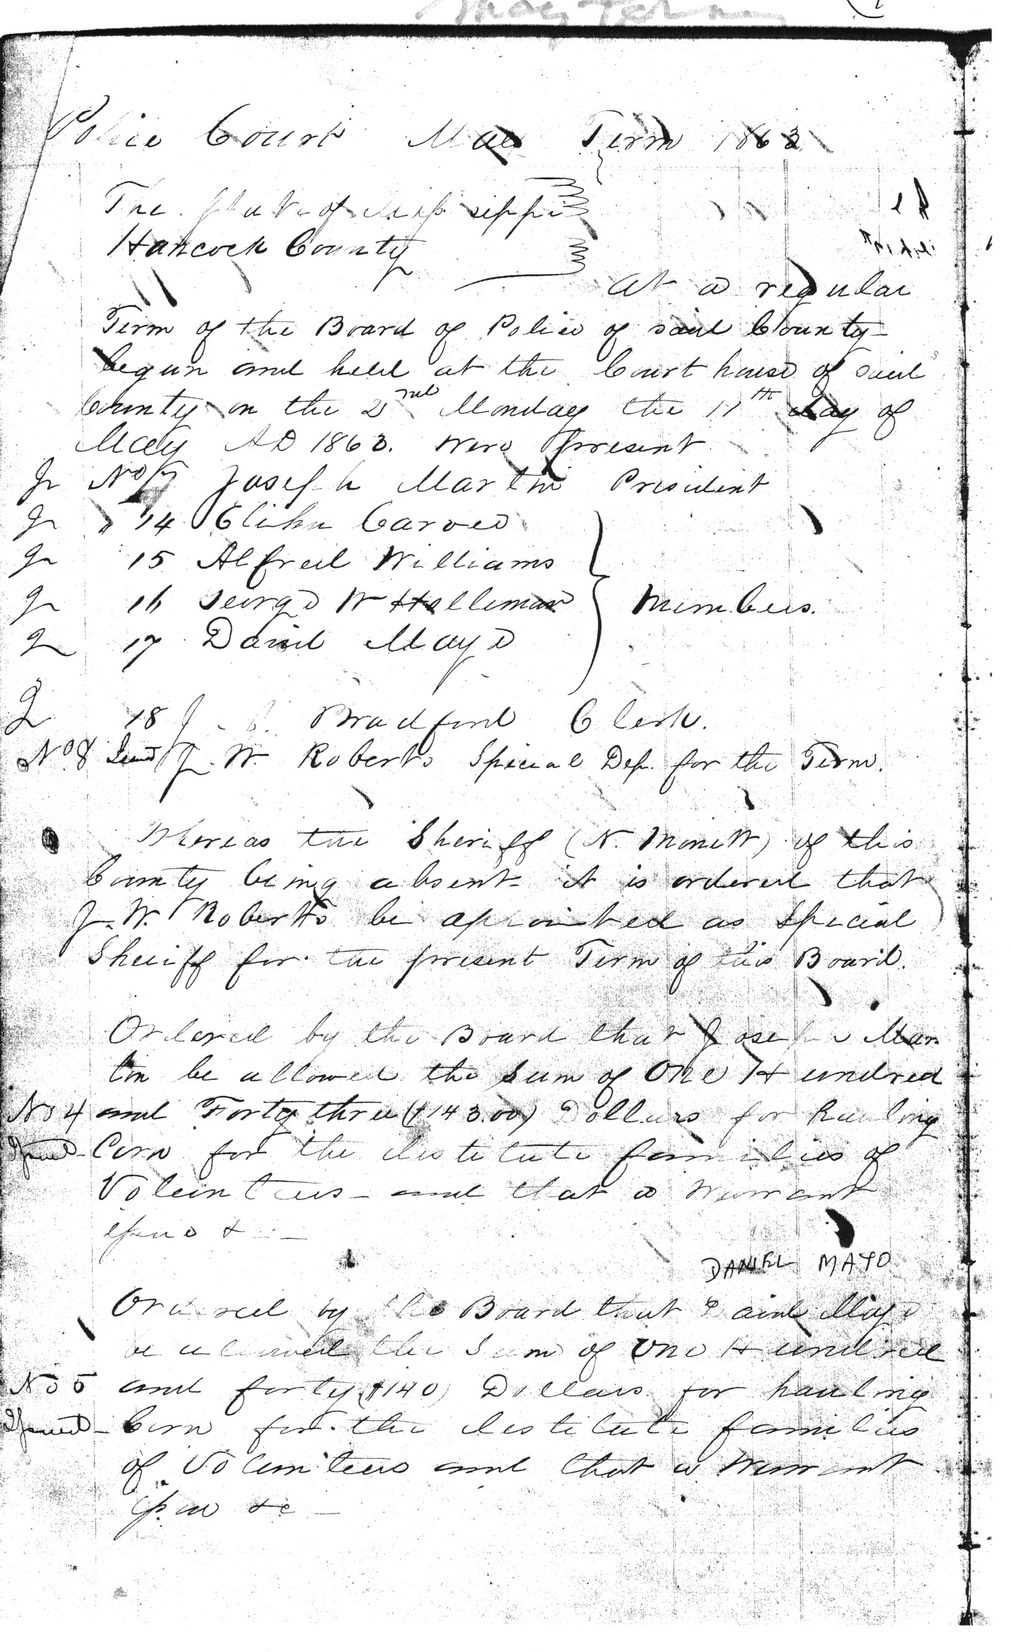 May Term
Police Court May Term 1863
The State of Mississippi
Hancock County
At a regular
Term of the Board of Police of said County
begun and held at the Court house of said
County on the 2nd Monday the 11th day of
May AD 1863. were present
No 7 Joseph Martin President
14 Elihu Carver
15 Alfred Williams
16 George W Holleman Members.
17 Daniel Mayo
18 J. Bradford Clerk.
No. 8 J. W. Roberts Special Dep. for the Term.
Whereas the Sheriff (N. Monett) of this
County being absent it is ordered that
J. W. Roberts be apointed as Special
Sheriff for the present Term of this Board.
Ordered by the Board that Joseph Mar
tin be allowed the Sum of One Hundred
No 4 and Forty three ($143.00) Dollars for hauling
Issued Corn for the destitute families of
Volunteers and that a Warrant
issue &
DANIEL MAYO
Ordered by the Board that Daniel Mayo
be allowed the Sum of One Hundred
No 5 and forty ($140) Dollars for hauling
Issued Corn for the destitute families
of Volunteers and that a Warrant
issue &c